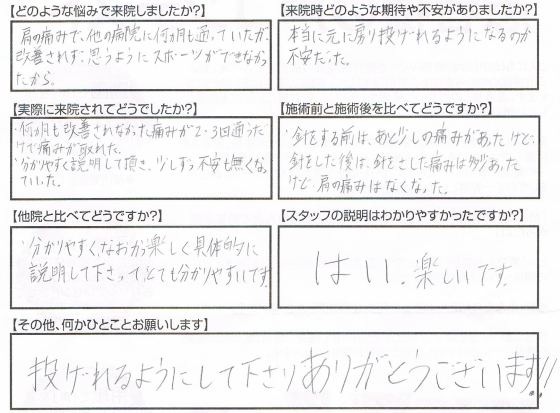 【どのような悩みで来院しましたか?】
肩の痛みで、他の病院に何ヵ月も通っていたが、
改善されず、思うようにスポーツができなかっ
たから。
【来院時どのような期待や不安がありましたか?】
本当に元に戻り投げれるようになるのか
不安だった。
【実際に来院されてどうでしたか?】
・何ヵ月も改善されなかった痛みが2・3回通うだ
けで痛みが取れた。
・分かりやすく説明して頂き、少しずつ不安も無くな
っていった。
【施術前と施術後を比べてどうですか?】
・針をする前は、あと少しの痛みがあったけど、
針をした後は、針をさした痛みは多少あった
けど肩の痛みはなくなった。
【他院と比べてどうですか?】
・分かりやすく、なおかつ楽しく具体的に
説明して下さって、とても分かりやすいです。
【スタッフの説明はわかりやすかったですか?】
はい。楽しいです。
【その他、何かひとことお願いします】
投げれるようにして下さりありがとうございます!!